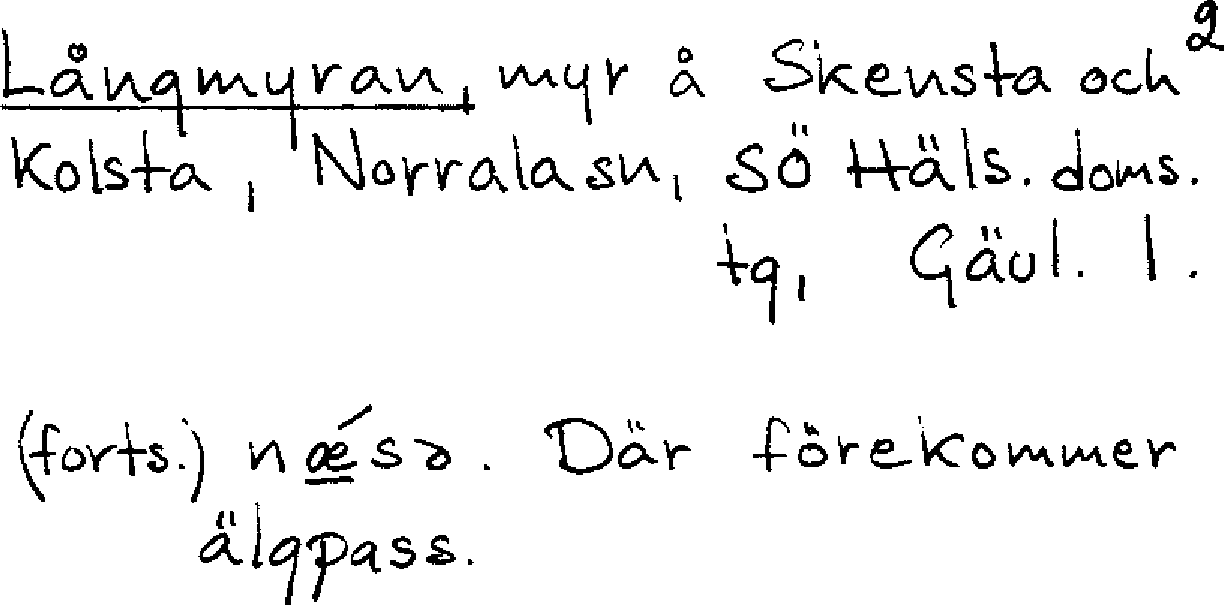 Långmyran, myr å Skensta och 2
Kolsta, Norrala sn, SÖ Häls. doms.
tg, Gävl. l.
(forts.) nǽsə. Där förekommer
älgpass.